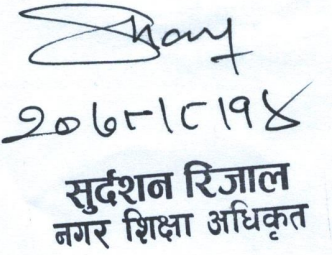 २०७८।८।१४
सुर्दशन रिजाल
नगर शिक्षा अधिकृत